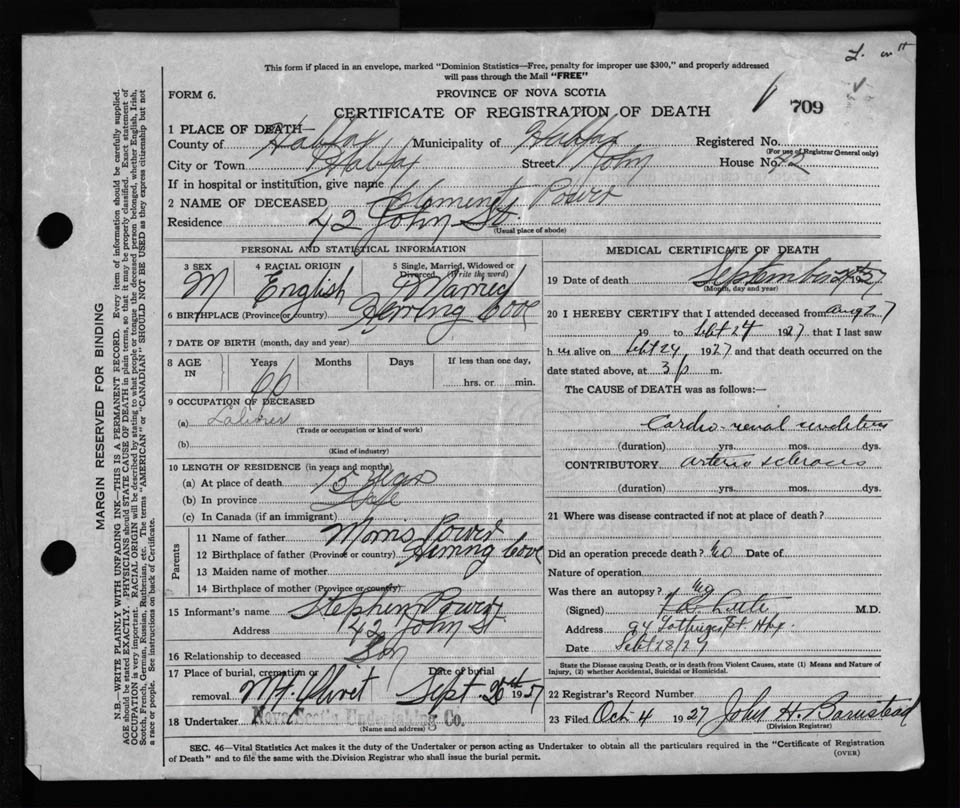 This form if placed in an envelope, marked "Dominion Statistics—Free, penalty for improper use $300," and properly addressed
will pass through the Mail "FREE"
FORM 6.
PROVINCE OF NOVA SCOTIA
CERTIFICATE OF REGISTRATION OF DEATH
709
1 PLACE OF DEATH—
County of Halifax Municipality of Halifax Registered No.
(For use of Registrar General only)
City or Town Halifax Street John House No. 42
If in hospital or institution, give name
2 NAME OF DECEASED Clement Power
Residence 42 John St.
(Usual place of abode)
PERSONAL AND STATISTICAL INFORMATION
3 SEX M
4 RACIAL ORIGIN English
5 Single, Married, Widowed or Divorced (Write the word) Married
6 BIRTHPLACE (Province or country) Herring Cove
7 DATE OF BIRTH (month, day and year)
8 AGE IN Years 66 Months Days If less than one day, hrs. or min.
9 OCCUPATION OF DECEASED
(a) Laborer
(Trade or occupation or kind of work)
(b)
(Kind of industry)
10 LENGTH OF RESIDENCE (in years and months)
(a) At place of death 15 years
(b) In province Life
(c) In Canada (if an immigrant)
Parents
11 Name of father Morris Power
12 Birthplace of father (Province or country) Herring Cove
13 Maiden name of mother
14 Birthplace of mother (Province or country)
15 Informant's name Stephen Power
Address 42 John St.
16 Relationship to deceased Son
17 Place of burial, cremation or removal Mt. Olivet Date of burial Sept 1927
18 Undertaker Nova Scotia Undertaking Co.
(Name and address)
MEDICAL CERTIFICATE OF DEATH
19 Date of death September 24th 1927
(Month, day and year)
20 I HEREBY CERTIFY that I attended deceased from Aug 27
19 to Sept 24 1927 that I last saw
h im alive on Sept 24 1927 and that death occurred on the
date stated above, at 3 p m.
The CAUSE OF DEATH was as follows:—
Cardio-renal
(duration) yrs. mos. dys.
CONTRIBUTORY arterio sclerosis
(duration) yrs. mos. dys.
21 Where was disease contracted if not at place of death?
Did an operation precede death? No Date of
Nature of operation
Was there an autopsy? No
(Signed) M.D.
Address 94 Gottingen St. Hfx.
Date
State the Disease causing Death, or in death from Violent Causes, state (1) Means and Nature of
Injury, (2) whether Accidental, Suicidal or Homicidal.
22 Registrar's Record Number
23 Filed Oct. 4 1927 John H. Barnstead
(Division Registrar)
SEC. 46—Vital Statistics Act makes it the duty of the Undertaker or person acting as Undertaker to obtain all the particulars required in the "Certificate of Registration
of Death" and to file the same with the Division Registrar who shall issue the burial permit.
(OVER)
MARGIN RESERVED FOR BINDING
N.B.—WRITE PLAINLY WITH UNFADING INK—THIS IS A PERMANENT RECORD. Every item of information should be carefully supplied.
AGE should be stated EXACTLY. PHYSICIANS should STATE CAUSE OF DEATH in plain terms, so that it may be properly classified. Exact statement of
OCCUPATION is very important. RACIAL ORIGIN will be described by stating to what people or tongue the deceased person belonged, whether English, Irish,
Scotch, French, German, Russian, Ruthenian, etc. The terms "AMERICAN" or "CANADIAN" SHOULD NOT BE USED as they express citizenship but not
a race or people. See instructions on back of Certificate.